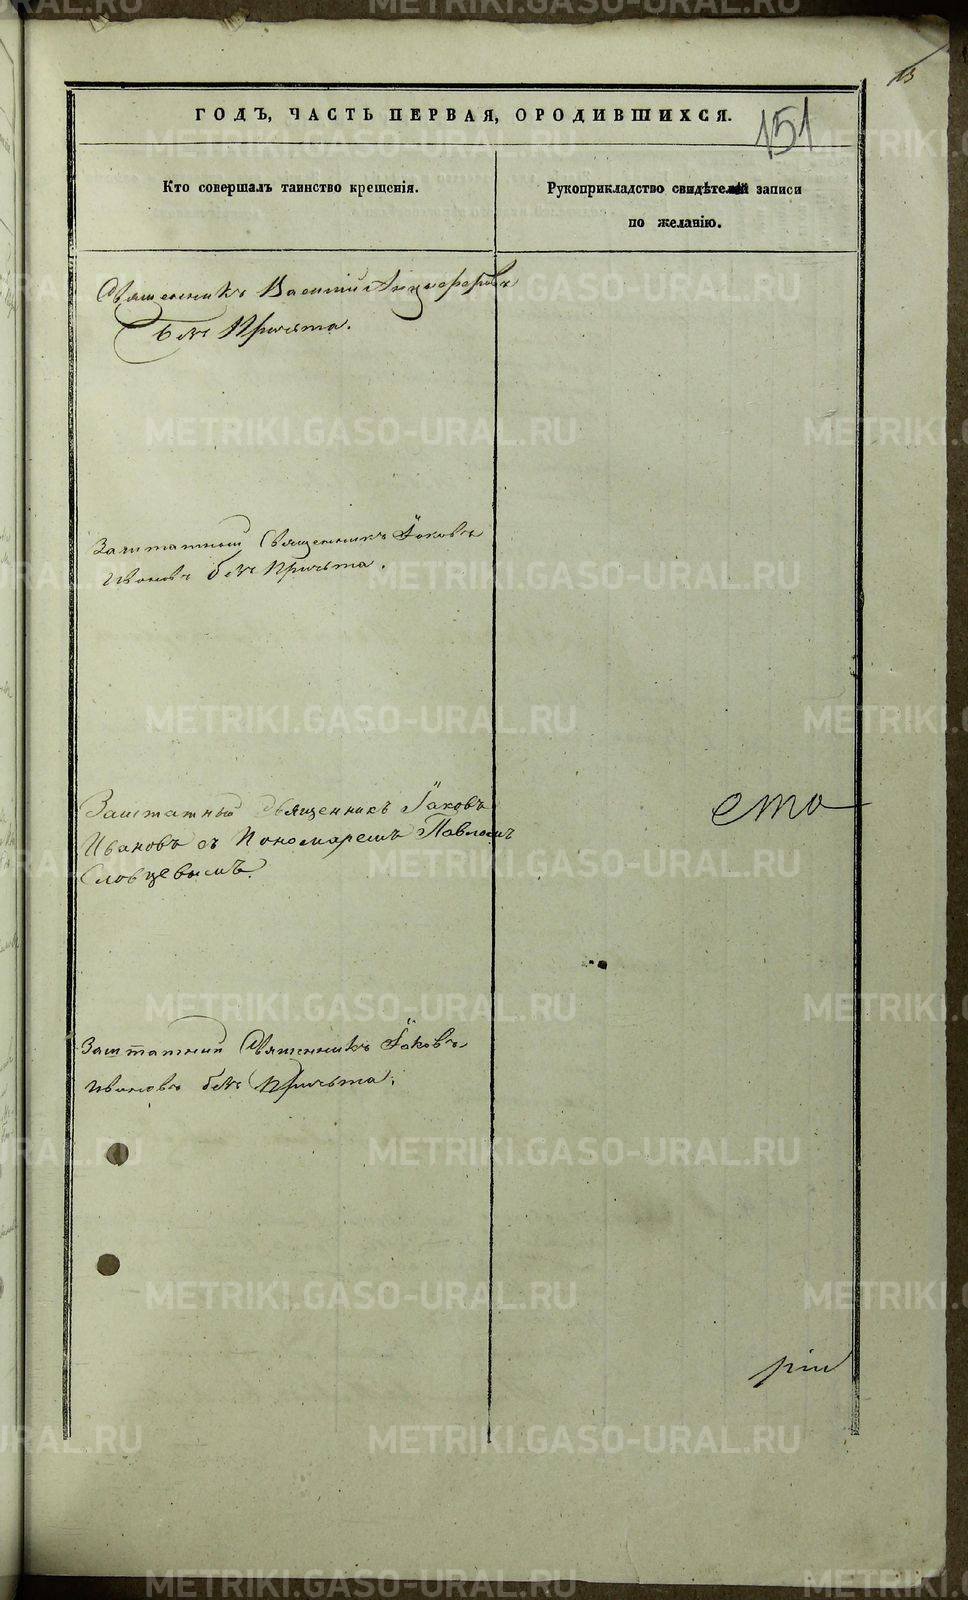 13
ГОДЪ, ЧАСТЬ ПЕРВАЯ, ОРОДИВШИХСЯ.
151
Кто совершалъ таинство крещенія.
Рукоприкладство свидѣтелей записи
по желанію.
Священникъ Василій Анцыферовъ
безъ Причта.
Заштатный Священникъ Іаковъ
Ивановъ безъ Причта.
Заштатный Священникъ Іаковъ
Ивановъ съ Пономаремъ Павломъ
Словцевымъ.
ета
Заштатный Священникъ Іаковъ
Ивановъ безъ Причта.
ріи
METRIKI.GASO-URAL.RU